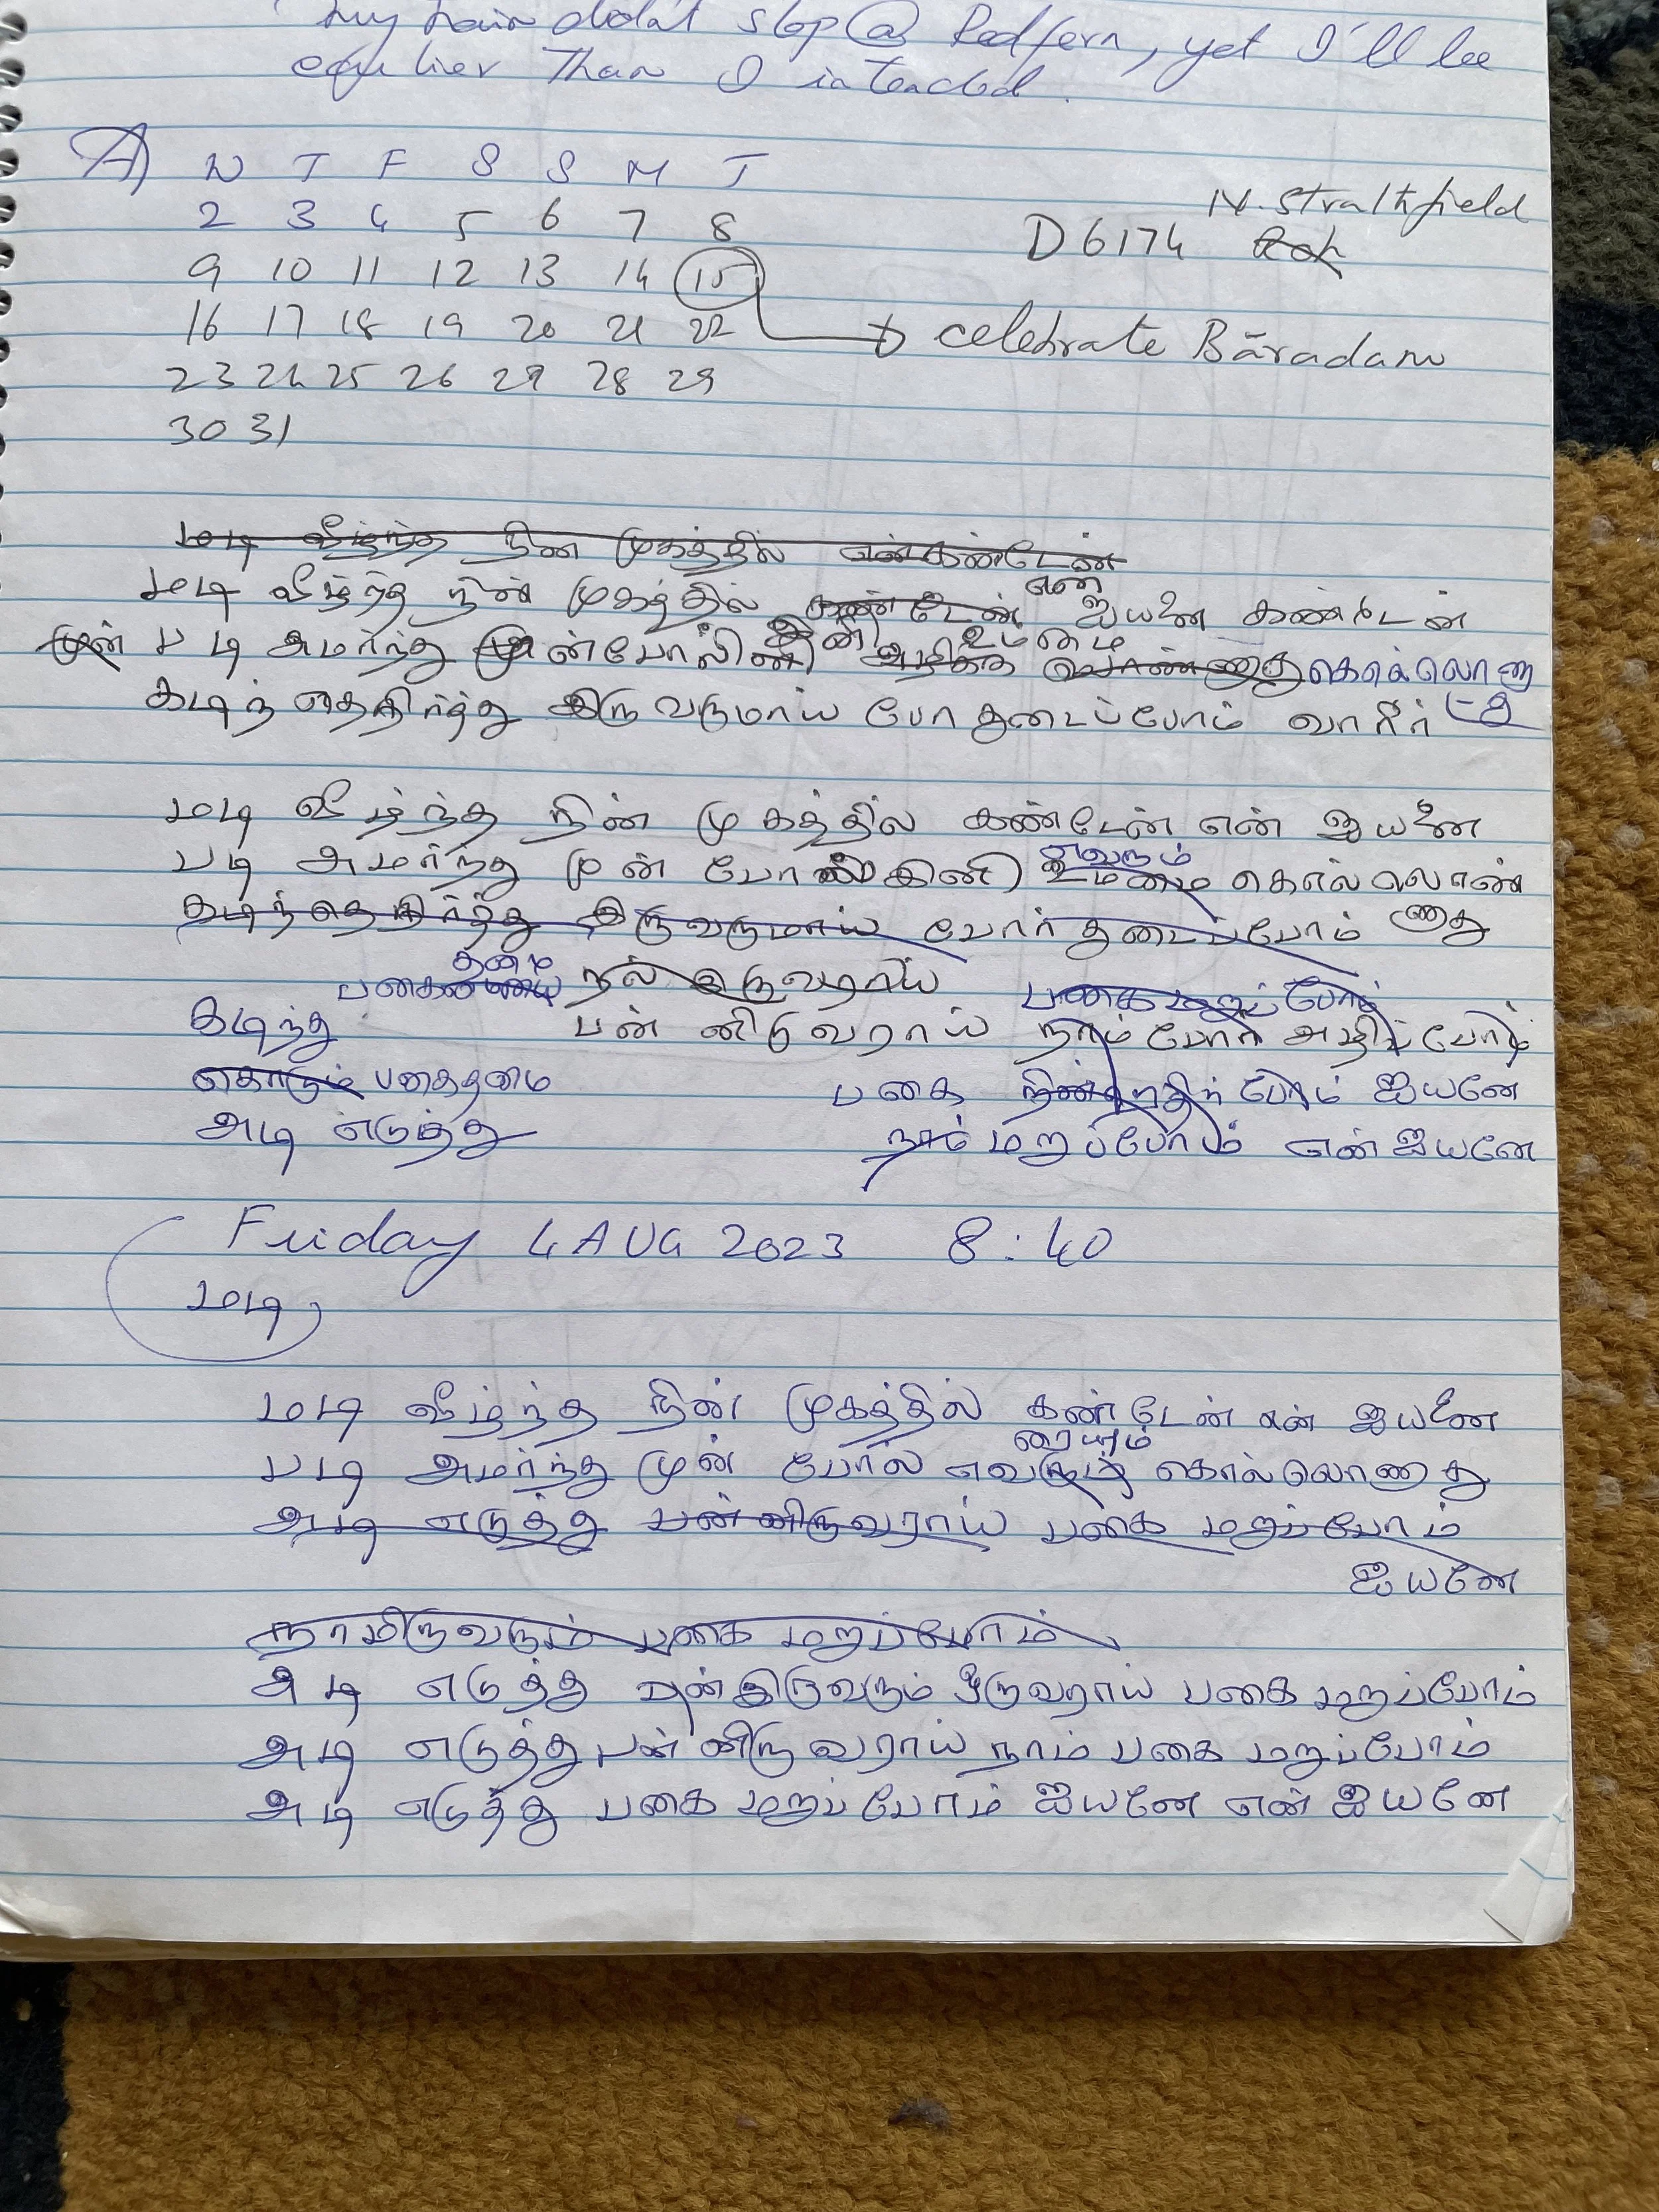 my train didn't stop @ Redfern, yet I'll be
earlier Than I intended.
A) W T F S S M T
2 3 4 5 6 7 8
N. Strathfield
D6174
9 10 11 12 13 14 15
16 17 18 19 20 21 22
celebrate Bāradam
23 24 25 26 27 28 29
30 31
மடி வீழ்ந்த நின் முகத்தில் என் கண்டேன்
என்
மடி வீழ்ந்த நின் முகத்தில் கண்டேன் ஐயனை கண்டேன்
இனி உம்மை
முன் படி அமர்ந்து முன்போலினி அழிக்க கொல்லொணா
கடிந்தெதிர்த்து இருவருமாய் போர் துடைப்போம் வாரீர்
மடி வீழ்ந்த நின் முகத்தில் கண்டேன் என் ஐயனை
எவரும்
படி அமர்ந்து முன் போல் இனி உம்மை கொல்லொண்
கடிந்தெதிர்த்து இருவருமாய் போர் துடைப்போம் ணுது
தன்மை
பகைமையை நல் இருவராய் பகை மறப்போம்
கடிந்து பன்னிருவராய் நாம் போர் அழிப்போம்
கொடும் பகைதமை பகை நின்றெதிர்ப்போம் ஐயனே
அடி எடுத்து நாம் மறப்போம் என் ஐயனே
Friday 4 AUG 2023 8:40
மடி
மடி வீழ்ந்த நின் முகத்தில் கண்டேன் என் ஐயனை
ரையும்
படி அமர்ந்து முன் போல் எவரும் கொல்லொணாது
அடி எடுத்து பன்னிருவராய் பகை மறப்போம்
ஐயனே
நாமிருவரும் பகை மறப்போம்
அடி எடுத்து முன் இருவரும் ஒருவராய் பகை மறப்போம்
அடி எடுத்து பன்னிருவராய் நாம் பகை மறப்போம்
அடி எடுத்து பகை மறப்போம் ஐயனே என் ஐயனே